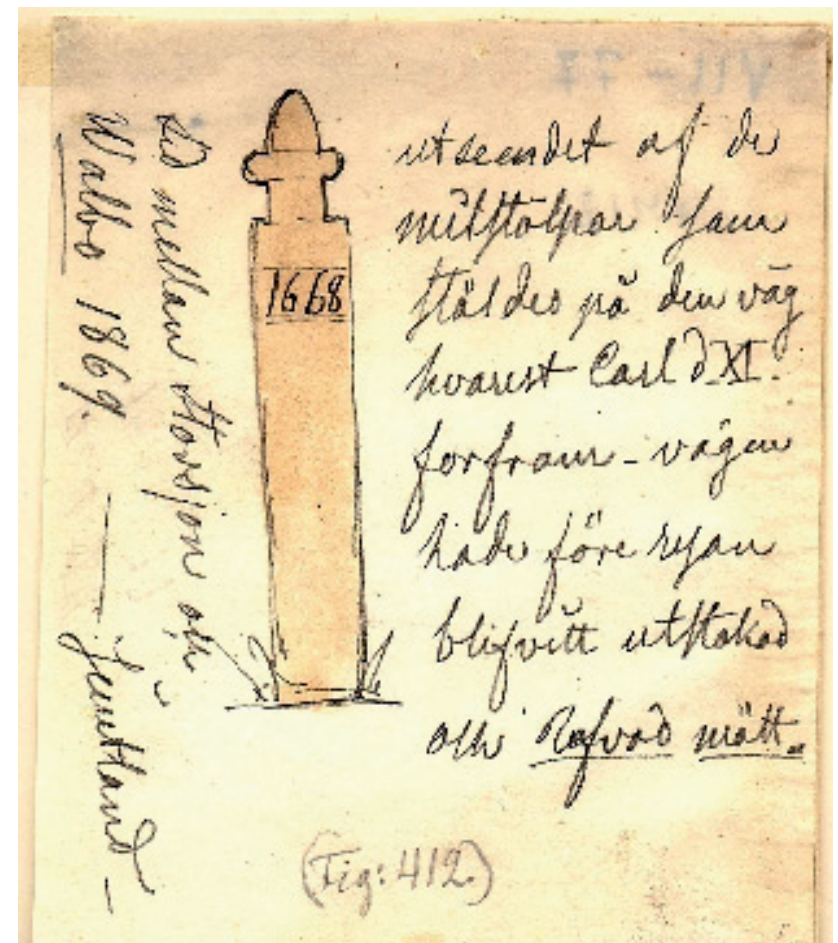 utseendet af de
milstolpar som
stäldes på den väg
hvarest Carl d XI.
for fram - vägen
hade före resan
blifvitt utstakad
och Refvad mätt.
1668
mellan Storsjön och
Walbo 1869.
— Jemtland —
(Fig: 412.)